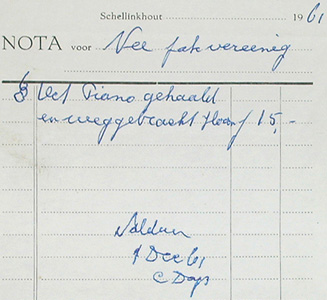 Schellinkhout 1961
NOTA voor Vee fok vereenig
Piano gehaald
en weggebracht Hoorn f 15,-
Voldaan
1 Dec 61
C Days